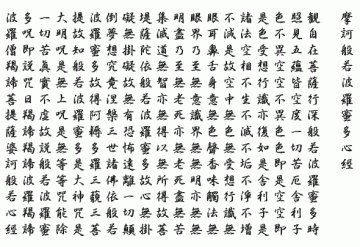 摩訶般若波羅蜜多心經
觀自在菩薩行深般若波羅蜜多時
照見五蘊皆空度一切苦厄舍利子
色不異空空不異色色即是空空即
是色受想行識亦復如是舍利子是
諸法空相不生不滅不垢不淨不增
不減是故空中無色無受想行識無
眼耳鼻舌身意無色聲香味觸法無
眼界乃至無意識界無無明亦無無
明盡乃至無老死亦無老死盡無苦
集滅道無智亦無得以無所得故菩
堤薩陀依般若波羅蜜多故心無掛
礙無掛礙故無有恐怖遠離一切顛
倒夢想究竟涅槃三世諸佛依般若
波羅蜜多故得阿耨多羅三藐三菩
提故知般若波羅蜜多是大神咒是
大明咒是無上咒是無等等咒能除
一切苦真實不虛故說般若波羅蜜
多咒即說咒曰羯諦羯諦波羅羯諦
波羅僧羯諦菩提薩婆訶般若心經